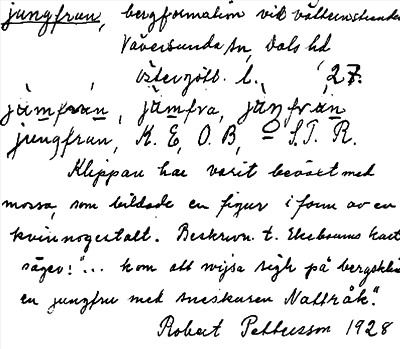 jungfrun, bergformation vid vätternstranden
Väversunda sn, Dals hd
Östergötl. l. 27.
jämfrán, jämfra, jänfrán
jungfrun, K. E, O. B, S. T. R.
Klippan har varit beväxt med
mossa, som bildade en figur i form av en
kvinnogestalt. Beskrivn. t. Ekebaums kart
säger: "... kom att wijsa sigh på bergsklin
en jungfru med sneskuren Nattråk."
Robert Pettersson 1928